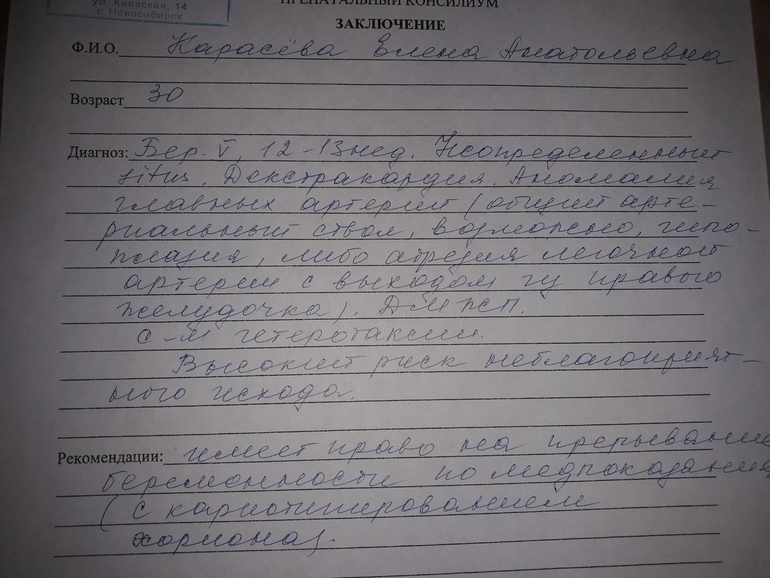 ул. Киевская, 14
г. Новосибирск
ПРЕНАТАЛЬНЫЙ КОНСИЛИУМ
ЗАКЛЮЧЕНИЕ
Ф.И.О. Карасёва Елена Анатольевна
Возраст 30
Диагноз: Бер. V, 12-13нед. Неопределенный
situs. Декстракардия. Аномалия
главных артерий (общий арте-
риальный ствол, возможно, гипо-
плазия, либо атрезия легочной
артерии с выходом из правого
желудочка). ДМЖП.
с-м гетеротаксии.
Высокий риск неблагоприят-
ного исхода.
Рекомендации: имеет право на прерывание
беременности по медпоказания
(с кариотипированием
хориона).